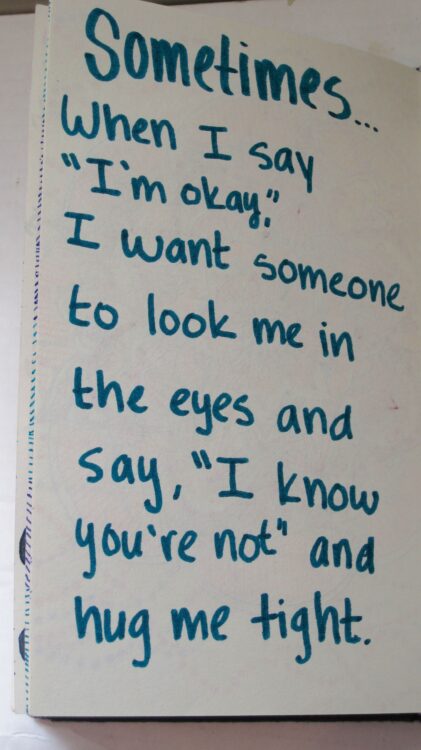 Sometimes...
When I say
"I'm okay,"
I want someone
to look me in
the eyes and
say, "I know
you're not" and
hug me tight.